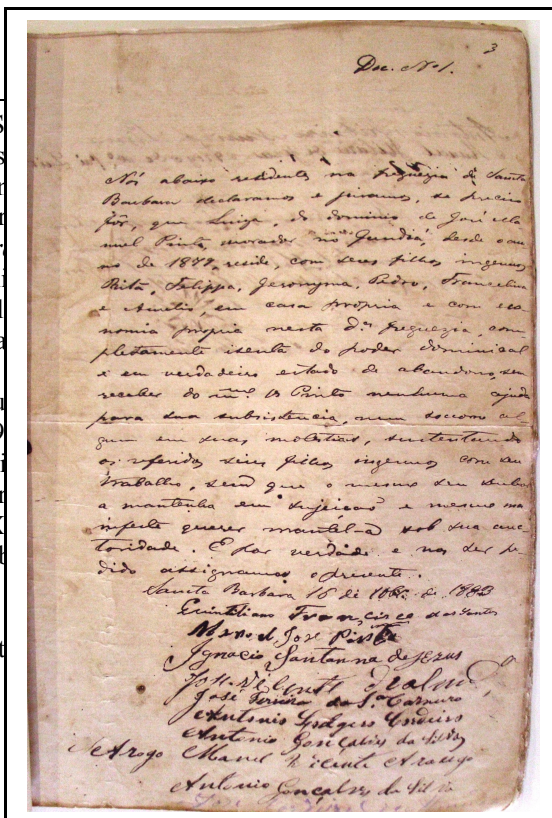 3
Doc. Nº 1.
Nós abaixo residentes na freguezia de Santa
Barbara declaramos e juramos, se preciso
fôr, que Luiza, do dominio de José Ma
nuel Pinto, morador no Jundiá, desde o an
no de 1877, reside, com seus filhos ingenuos
Rita, Felippa, Jeronyma, Pedro, Francelina
e Aurelio, em casa propria e com eco
nomia propria nesta d.ª freguezia, com
pletamente isenta do poder dominical
e em verdadeiro estado de abandono, sem
receber do m.mo Pinto nenhuma ajuda
para sua subsistencia, nem soccorro al
gum em suas molestias, sustentando
os referidos seus filhos ingenuos com seu
trabalho, sem que o mesmo seu senhor
a mantenha em sujeicão e mesmo ma
nifeste querer mantel-a sob sua auc
toridade. E por verdade e nos ser pe
dido assignamos o presente.
Sancta Barbara 16 de de 1883
Quintiliano Francisco dos Santos
Manoel José Pinto
Ignacio Santanna de Jezus
José Ferreira da S.ª Carneiro
Antonio Cordeiro
Antonio Gonçalves da Silva
Arogo Manoel Vicente Araujo
Antonio Gonçalves da Silva